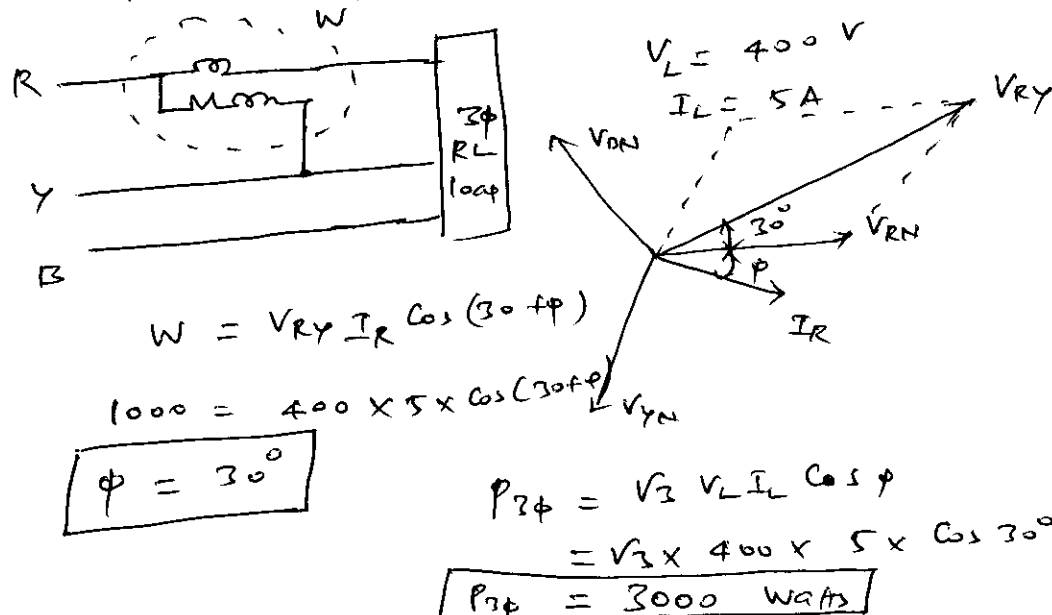 W
R
Y
B
3φ
RL
load
V_L = 400 V
I_L = 5 A
V_RY
V_BN
30°
V_RN
φ
I_R
V_YN
W = V_RY I_R Cos(30+φ)
1000 = 400 × 5 × cos(30+φ)
φ = 30°
P_3φ = √3 V_L I_L Cos φ
= √3 × 400 × 5 × Cos 30°
P_3φ = 3000 Watts